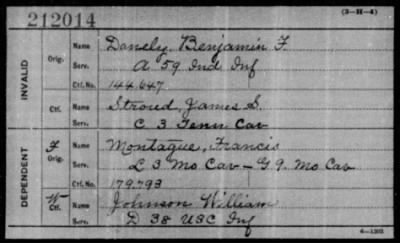 212014 (3-H-4)
INVALID
Orig. Name Danely, Benjamin F.
Serv. A 59 Ind Inf
Ctf. No. 144.647
Ctf. Name Stroud, James S.
Serv. C 3 Tenn Cav
DEPENDENT
F Orig. Name Montague, Francis
Serv. L 3 Mo Cav - G 9. Mo Cav
Ctf. No. 179.793
W Ctf. Name Johnson William
Serv. D 38 USC Inf
6-1303